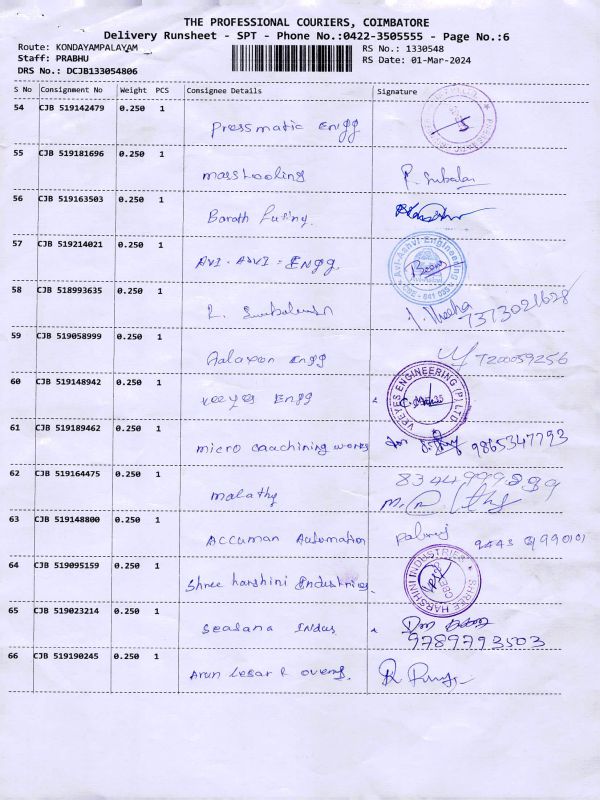 THE PROFESSIONAL COURIERS, COIMBATORE
Delivery Runsheet - SPT - Phone No.:0422-3505555 - Page No.:6
Route: KONDAYAMPALAYAM RS No.: 1330548
Staff: PRABHU RS Date: 01-Mar-2024
DRS No.: DCJB133054806
S No Consignment No Weight PCS Consignee Details Signature
54 CJB 519142479 0.250 1
Pressmatic Engg
55 CJB 519181696 0.250 1
masstooling
56 CJB 519163503 0.250 1
Barath
57 CJB 519214021 0.250 1
AVI - AAVI - ENgg. Avi-Aanvi Engineering CBE - 641 035
58 CJB 518993635 0.250 1
7373021628
59 CJB 519058999 0.250 1
Engg 7200059256
60 CJB 519148942 0.250 1
veeyes Engg VPEYES ENGINEERING (P) LTD
61 CJB 519189462 0.250 1
micro caachining works for 9865347793
62 CJB 519164475 0.250 1
malathy
63 CJB 519148800 0.250 1
Accuman Automation
64 CJB 519095159 0.250 1
Shree harshini Industries. SHREE HARSHINI INDUSTRIES
65 CJB 519023214 0.250 1
Seasana Indus 9789793503
66 CJB 519190245 0.250 1
Arun Lesar & ovens.